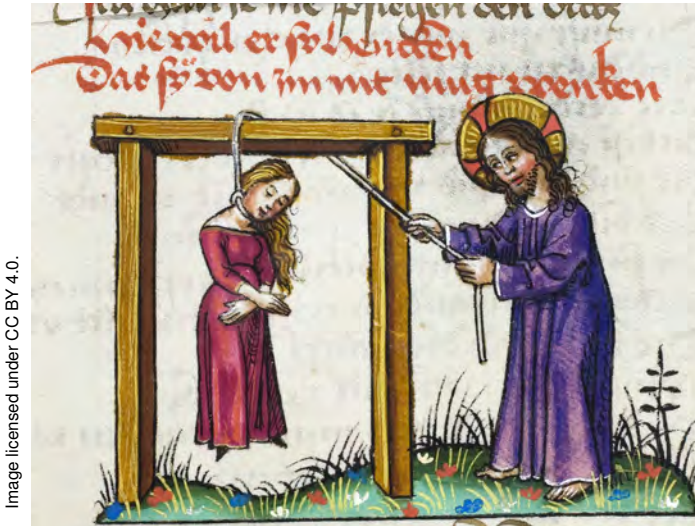 Hie wil er sÿ hencken
Das sÿ von im nit mug wenken
Image licensed under CC BY 4.0.